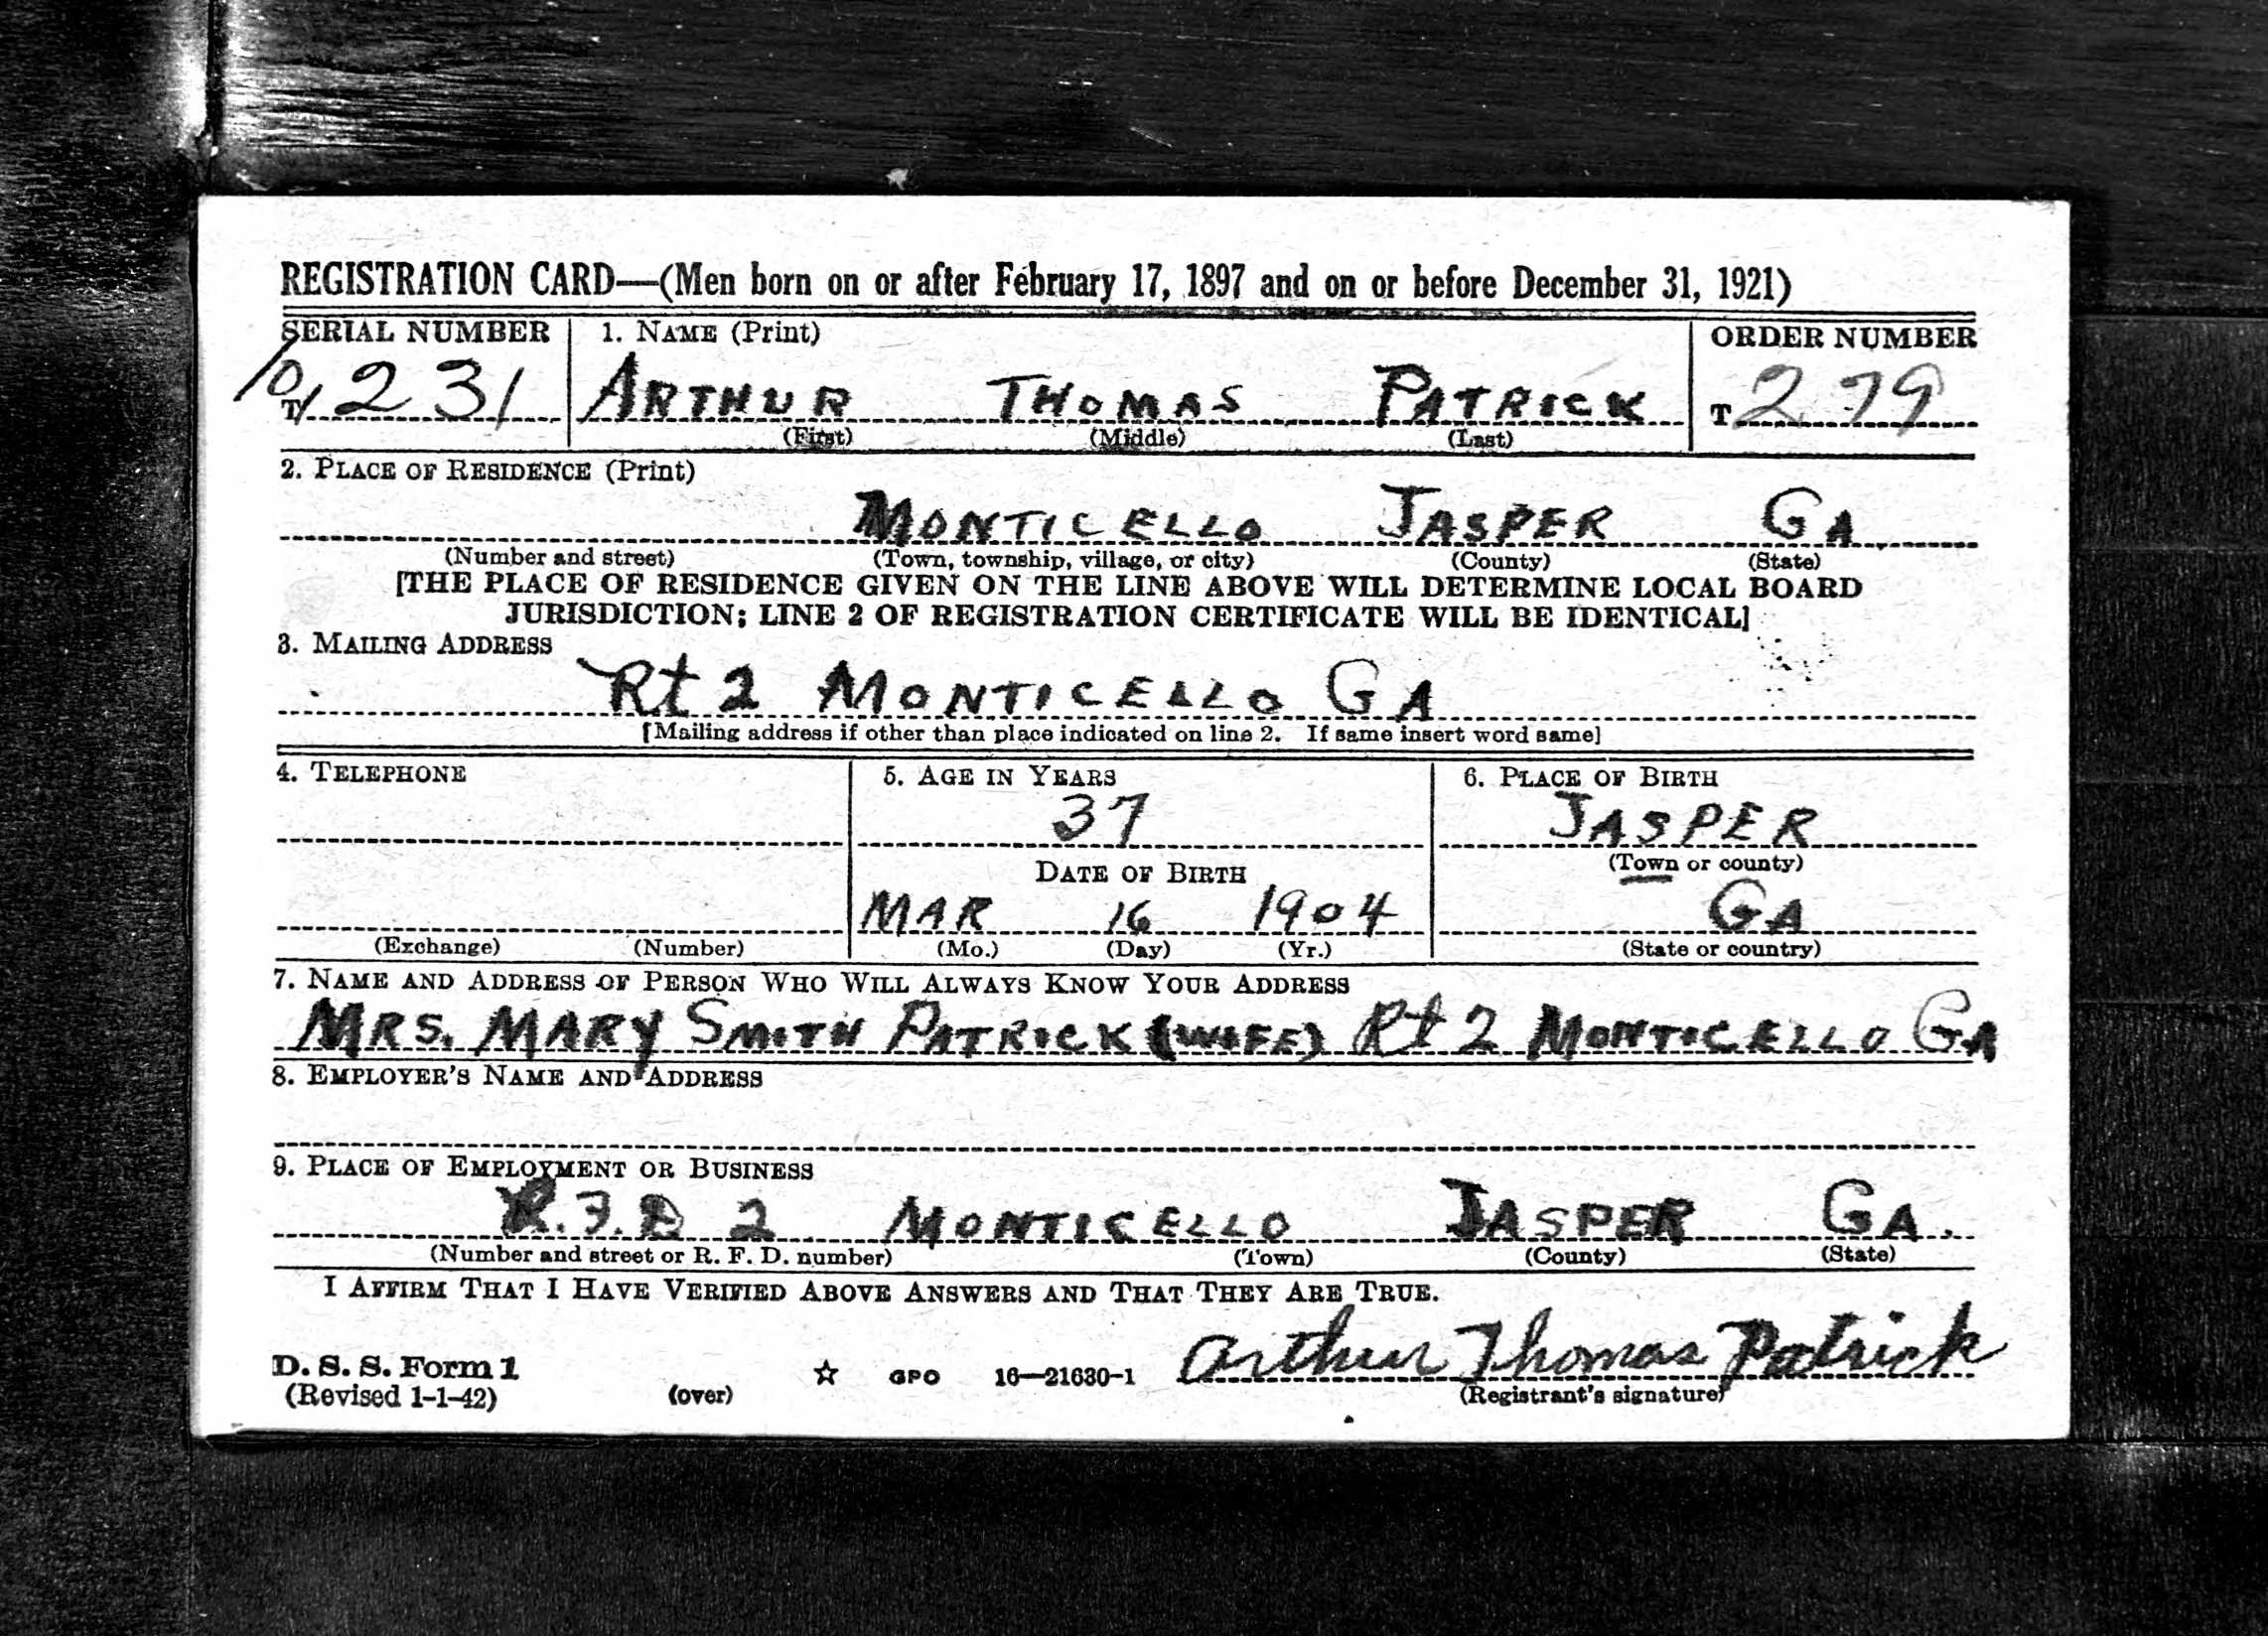 REGISTRATION CARD—(Men born on or after February 17, 1897 and on or before December 31, 1921)
SERIAL NUMBER 1. NAME (Print) ORDER NUMBER
T 231 ARTHUR THOMAS PATRICK T 279
(First) (Middle) (Last)
2. PLACE OF RESIDENCE (Print)
MONTICELLO JASPER GA.
(Number and street) (Town, township, village, or city) (County) (State)
[THE PLACE OF RESIDENCE GIVEN ON THE LINE ABOVE WILL DETERMINE LOCAL BOARD
JURISDICTION; LINE 2 OF REGISTRATION CERTIFICATE WILL BE IDENTICAL]
3. MAILING ADDRESS
Rt 2 MONTICELLO GA
[Mailing address if other than place indicated on line 2. If same insert word same]
4. TELEPHONE 5. AGE IN YEARS 6. PLACE OF BIRTH
37 JASPER
DATE OF BIRTH (Town or county)
MAR 16 1904 GA
(Exchange) (Number) (Mo.) (Day) (Yr.) (State or country)
7. NAME AND ADDRESS OF PERSON WHO WILL ALWAYS KNOW YOUR ADDRESS
MRS. MARY SMITH PATRICK (WIFE) Rt 2 MONTICELLO GA
8. EMPLOYER'S NAME AND ADDRESS
9. PLACE OF EMPLOYMENT OR BUSINESS
R.F.D 2 MONTICELLO JASPER GA.
(Number and street or R. F. D. number) (Town) (County) (State)
I AFFIRM THAT I HAVE VERIFIED ABOVE ANSWERS AND THAT THEY ARE TRUE.
Arthur Thomas Patrick
D. S. S. Form 1 ☆ GPO 16—21630-1
(Revised 1-1-42) (over) (Registrant's signature)